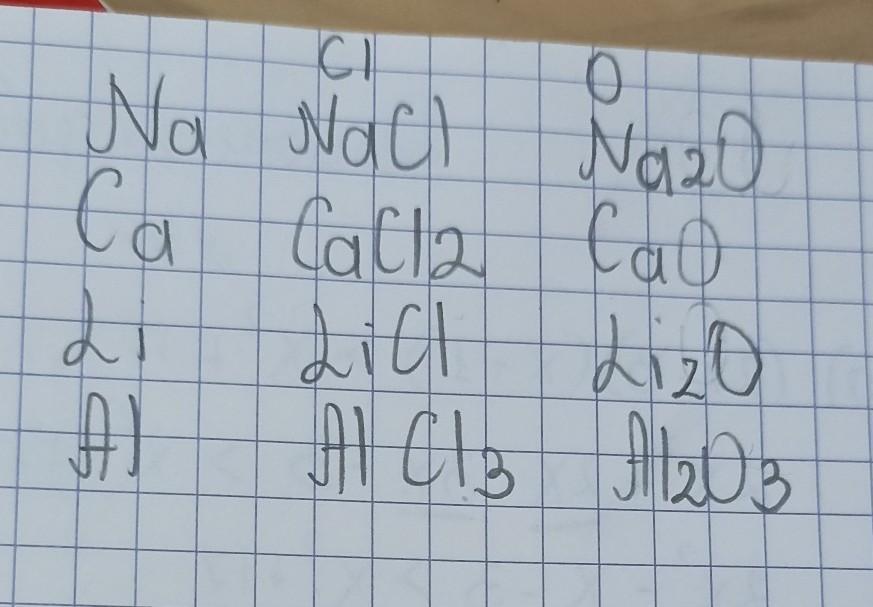 Cl O
Na NaCl Na2O
Ca CaCl2 CaO
Li LiCl Li2O
Al AlCl3 Al2O3